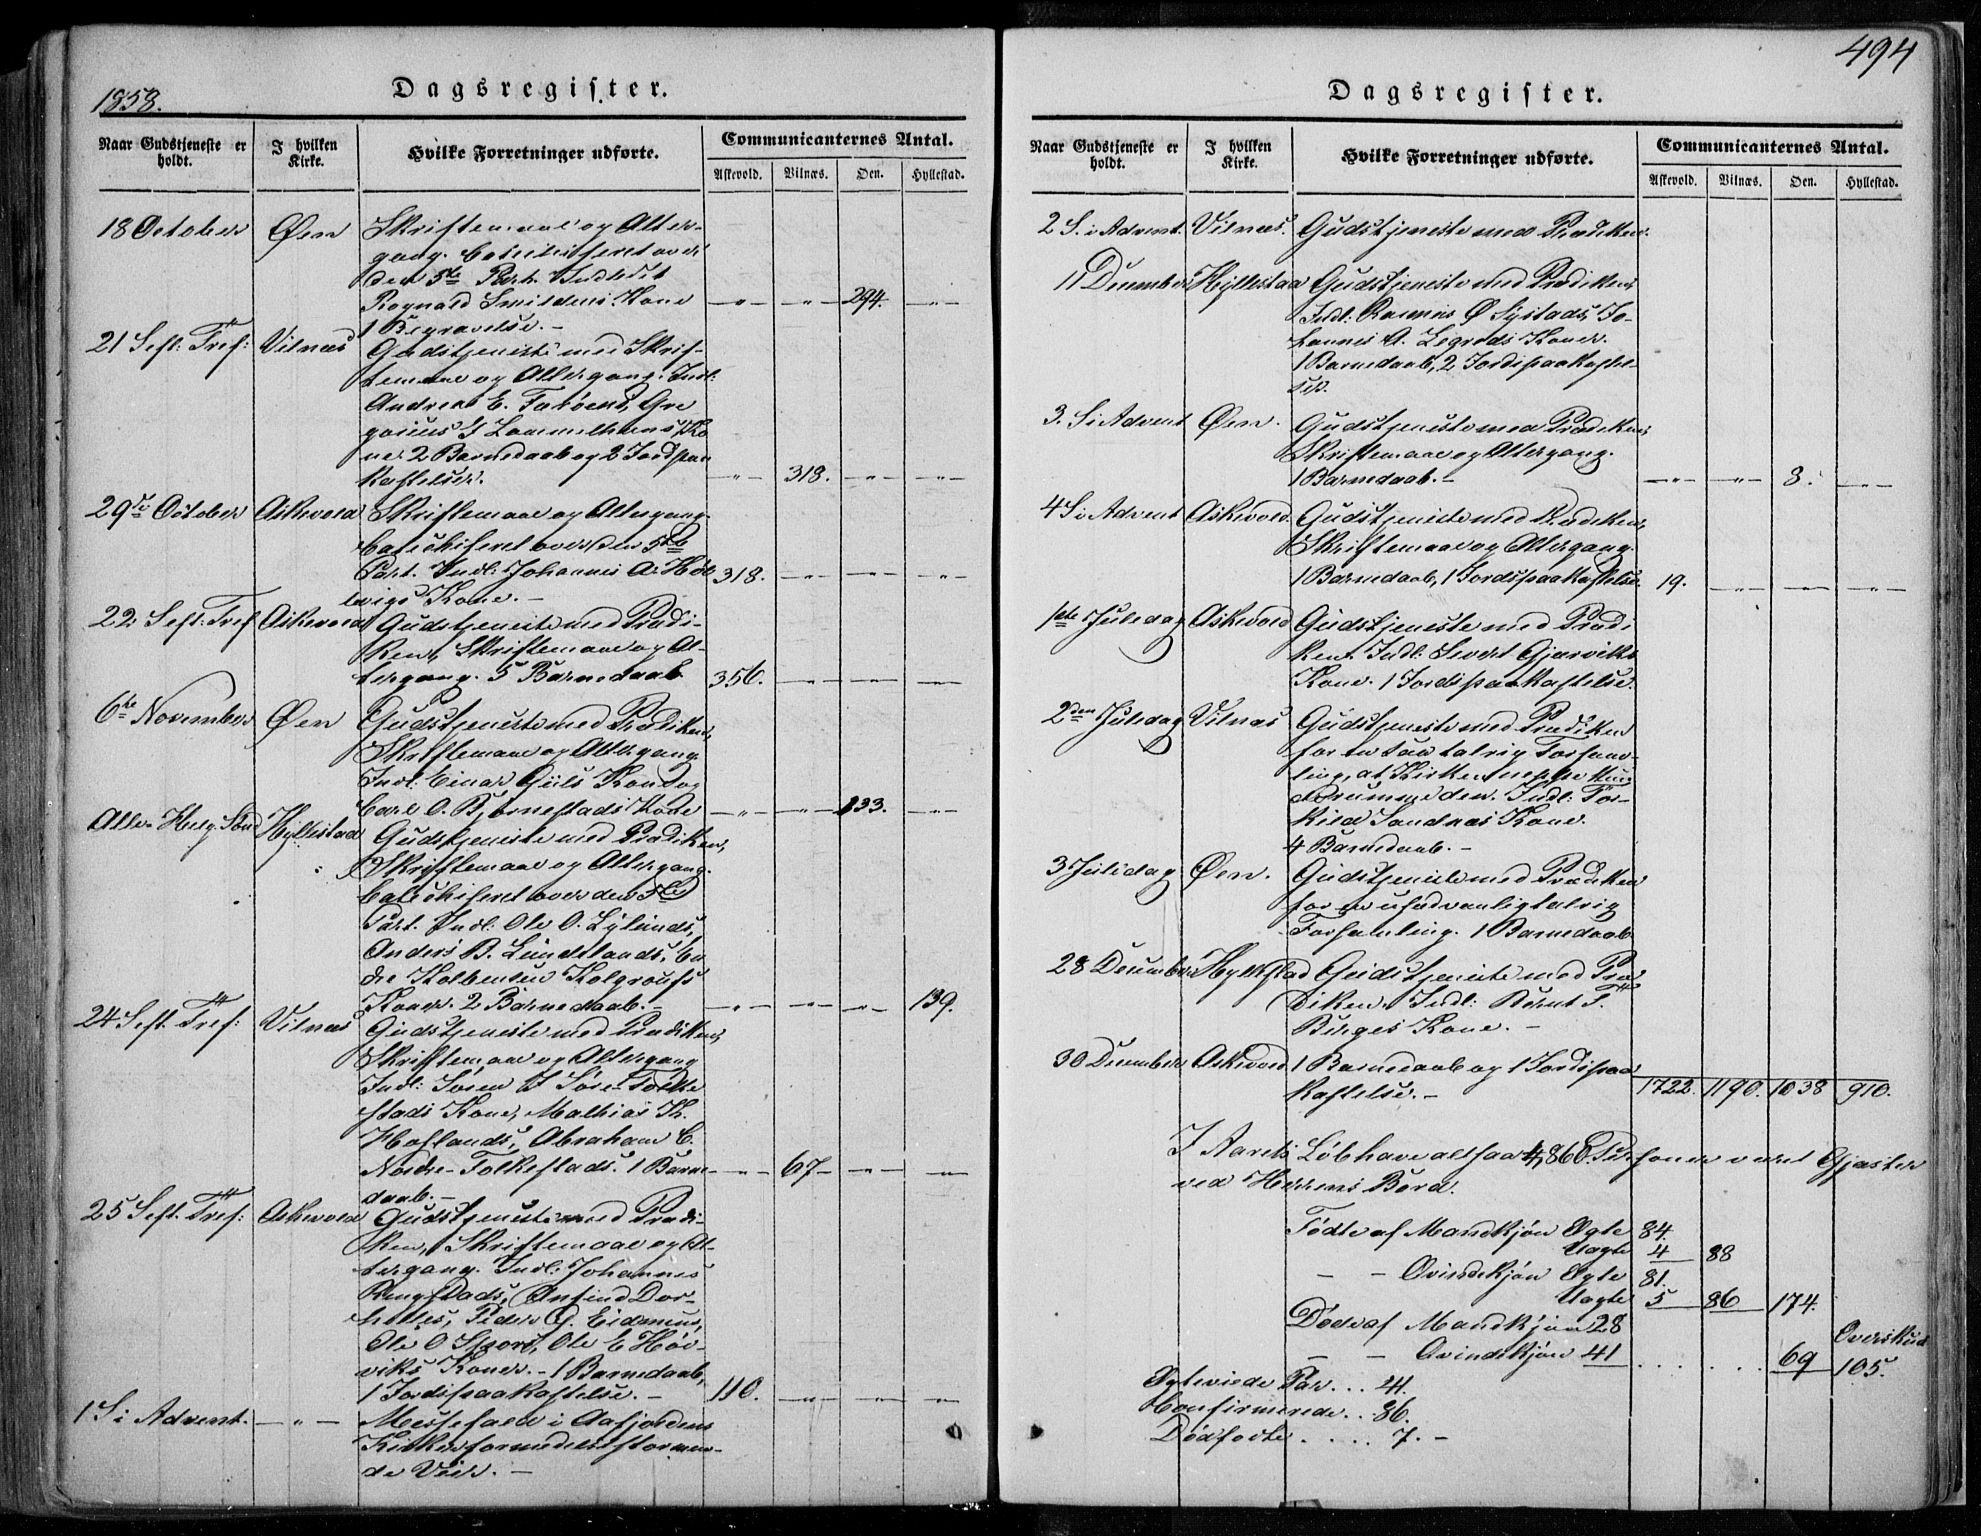 1858.
Dagsregister.
Naar Gudstjeneste er holdt.
I hvilken Kirke.
Hvilke Forretninger udførte.
Communicanternes Antal.
Askevold. Vilnæs. Øen. Hyllestad.
18 October Øen Skriftemaal og Alter-
gang. Catechiseret over
den 5te Part. Indledet
Rognald Smildens Kone
1 Begravelse. — — " — — " — 294. — " —
21 Seft: Tref: Vilnæs Gudstjeneste med Skrif-
temaal og Altergang. Indl:
Andreas E. Farøens, Gre
gorius J Lammethuns Ko
ner 2 Barnedaab og 2 Jordspaa
kastelser. — " — 318. — " — — " —
29de October Askevold Skriftemaal og Altergang.
Catechiseret over den 5te
Part. Indl: Johannes A. Høl 318. — " — — " — — " —
vigs Kone. —
22 Seft: Tref Askevold Gudstjeneste med Prædi-
ken, Skriftemaal og Al-
tergang. 5 Barnedaab 356. — " — — " — — " —
6te November Øen Gudstjeneste med Prædiken,
Skriftemaal og Altergang.
Indl: Einar Gjils Kone og
Carl O. Bjørnestads Kone — " — — " — 133. — " —
Alle Helg. Sønd Hyllestad Gudstjeneste med Prædiken,
Skriftemaal og Altergang.
Catechiseret over den 5te
Part. Indl: Ole O. Lylunds,
Anders B. Lundelands,
Kolbensen
Koner. 2 Barnedaab. — — " — — " — — " — 139.
24 Seft. Tref: Vilnæs Gudstjeneste med Prædiken,
Skriftemaal og Altergang
Indl: Søren J Søre Folke
stads Kone, Mathias K.
Haflands, Abraham C.
Nordre Folkestads. 1 Barne- — " — 67 — — " — — " —
daab. —
25 Seft. Tref: Askevold Gudstjeneste med Prædi-
ken, Skriftemaal og Al-
tergang. Indl: Johannes
Ringstads, Anfind Dor-
Peder G. Eidmuns,
Ole O Ole E Hør-
viks Koner. — 1 Barnedaab,
1 Jordspaakastelse. — 110. — " — — " — — " —
1 S i Advent. — " — Messefald i Aafjordens
Kirke formedelst stormen-
de Veir. —
494
Dagsregister.
Naar Gudstjeneste er holdt.
I hvilken Kirke.
Hvilke Forretninger udførte.
Communicanternes Antal.
Askevold. Vilnæs. Øen. Hyllestad.
2 S. i Advent. Vilnæs. Gudstjeneste med Prædiken.
11 December Hyllestad Gudstjeneste med Prædiken,
Indl: Rasmus Ø Systads, Jo-
hannes A. Legreds Koner.
1 Barnedaab, 2 Jordspaakastel-
ser.
3. S i Advent Øen. Gudstjeneste med Prædiken,
Skriftemaal og Altergang.
1 Barnedaab. — — " — — " — 3. — " —
4 S i Advent Askevold Gudstjeneste med Prædiken,
Skriftemaal og Altergang.
1 Barnedaab, 1 Jordspaakastelse. 19. — " — — " — — " —
1ste Juledag Askevold Gudstjeneste med Prædi
ken. Indl: Sivert Gjarviks
Kone. 1 Jordspaakastelse.
2den Juledag Vilnæs Gudstjeneste med Prædiken
for en saa talrig Forsam-
ling, at Kirken neppe kun
de rumme den. Indl: Tor-
kild Sandnæs Kone.
4 Barnedaab. —
3 Juledag Øen. Gudstjeneste med Prædiken
for en usædvanlig talrig
Forsamling. 1 Barnedaab
28 December Hyllestad Gudstjeneste med Præ
diken. Indl: Bernt T.
Birges Kone. —
30 December Askevold 1 Barnedaab og 1 Jordspaa
kastelse. — 1722. 1190. 1038 910.
I Aarets Løb have altsaa 4,860 Personer været Gjæster
ved Herrens Bord.
Fødte af Mandkjøn Ægte 84.
Uægte 4 88
— — Qvindekjøn Ægte 81.
Uægte 5 86 174.
Døde af Mandkjøn 28
— — Qvindekjøn 41 . . . . . . . . 69 Overskud 105.
Ægteviede Par . . . 24.
Confirmerede . . 86.
Dødfødte . . . . . 7. —